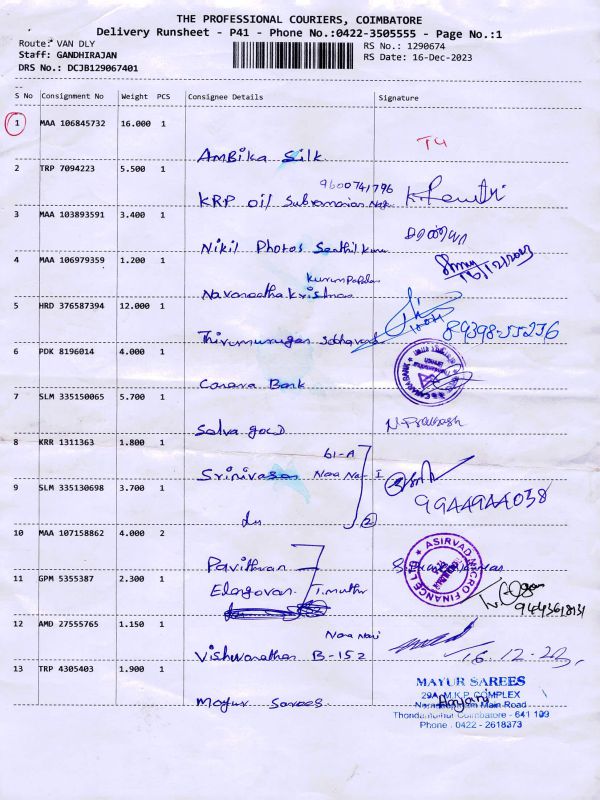 THE PROFESSIONAL COURIERS, COIMBATORE
Delivery Runsheet - P41 - Phone No.:0422-3505555 - Page No.:1
Route: VAN DLY RS No.: 1290674
Staff: GANDHIRAJAN RS Date: 16-Dec-2023
DRS No.: DCJB129067401
S No Consignment No Weight PCS Consignee Details Signature
1 MAA 106845732 16.000 1
Ambika Silk
2 TRP 7094223 5.500 1
9600741796
KRP oil Subramanian
3 MAA 103893591 3.400 1
Nikil Photos Senthil
4 MAA 106979359 1.200 1
16/12/2023
Navaneetha Krishnan
5 HRD 376587394 12.000 1
Thirumurugan 89398-55276
6 PDK 8196014 4.000 1
CANARA BANK
Canara Bank
7 SLM 335150065 5.700 1
Selva gold N. Prakash
8 KRR 1311363 1.800 1
61-A
Srinivasan
9 SLM 335130698 3.700 1
9944944038
2
10 MAA 107158862 4.000 2
ASIRVAD MICRO FINANCE LTD
Pavithran
11 GPM 5355387 2.300 1
Elangovan
12 AMD 27555765 1.150 1
Vishwanathan B-152 16.12.20
13 TRP 4305403 1.900 1
MAYUR SAREES
29A, M.K.P. COMPLEX
Main Road
Coimbatore - 641 109
Phone : 0422 - 2618373
Mayur Sarees